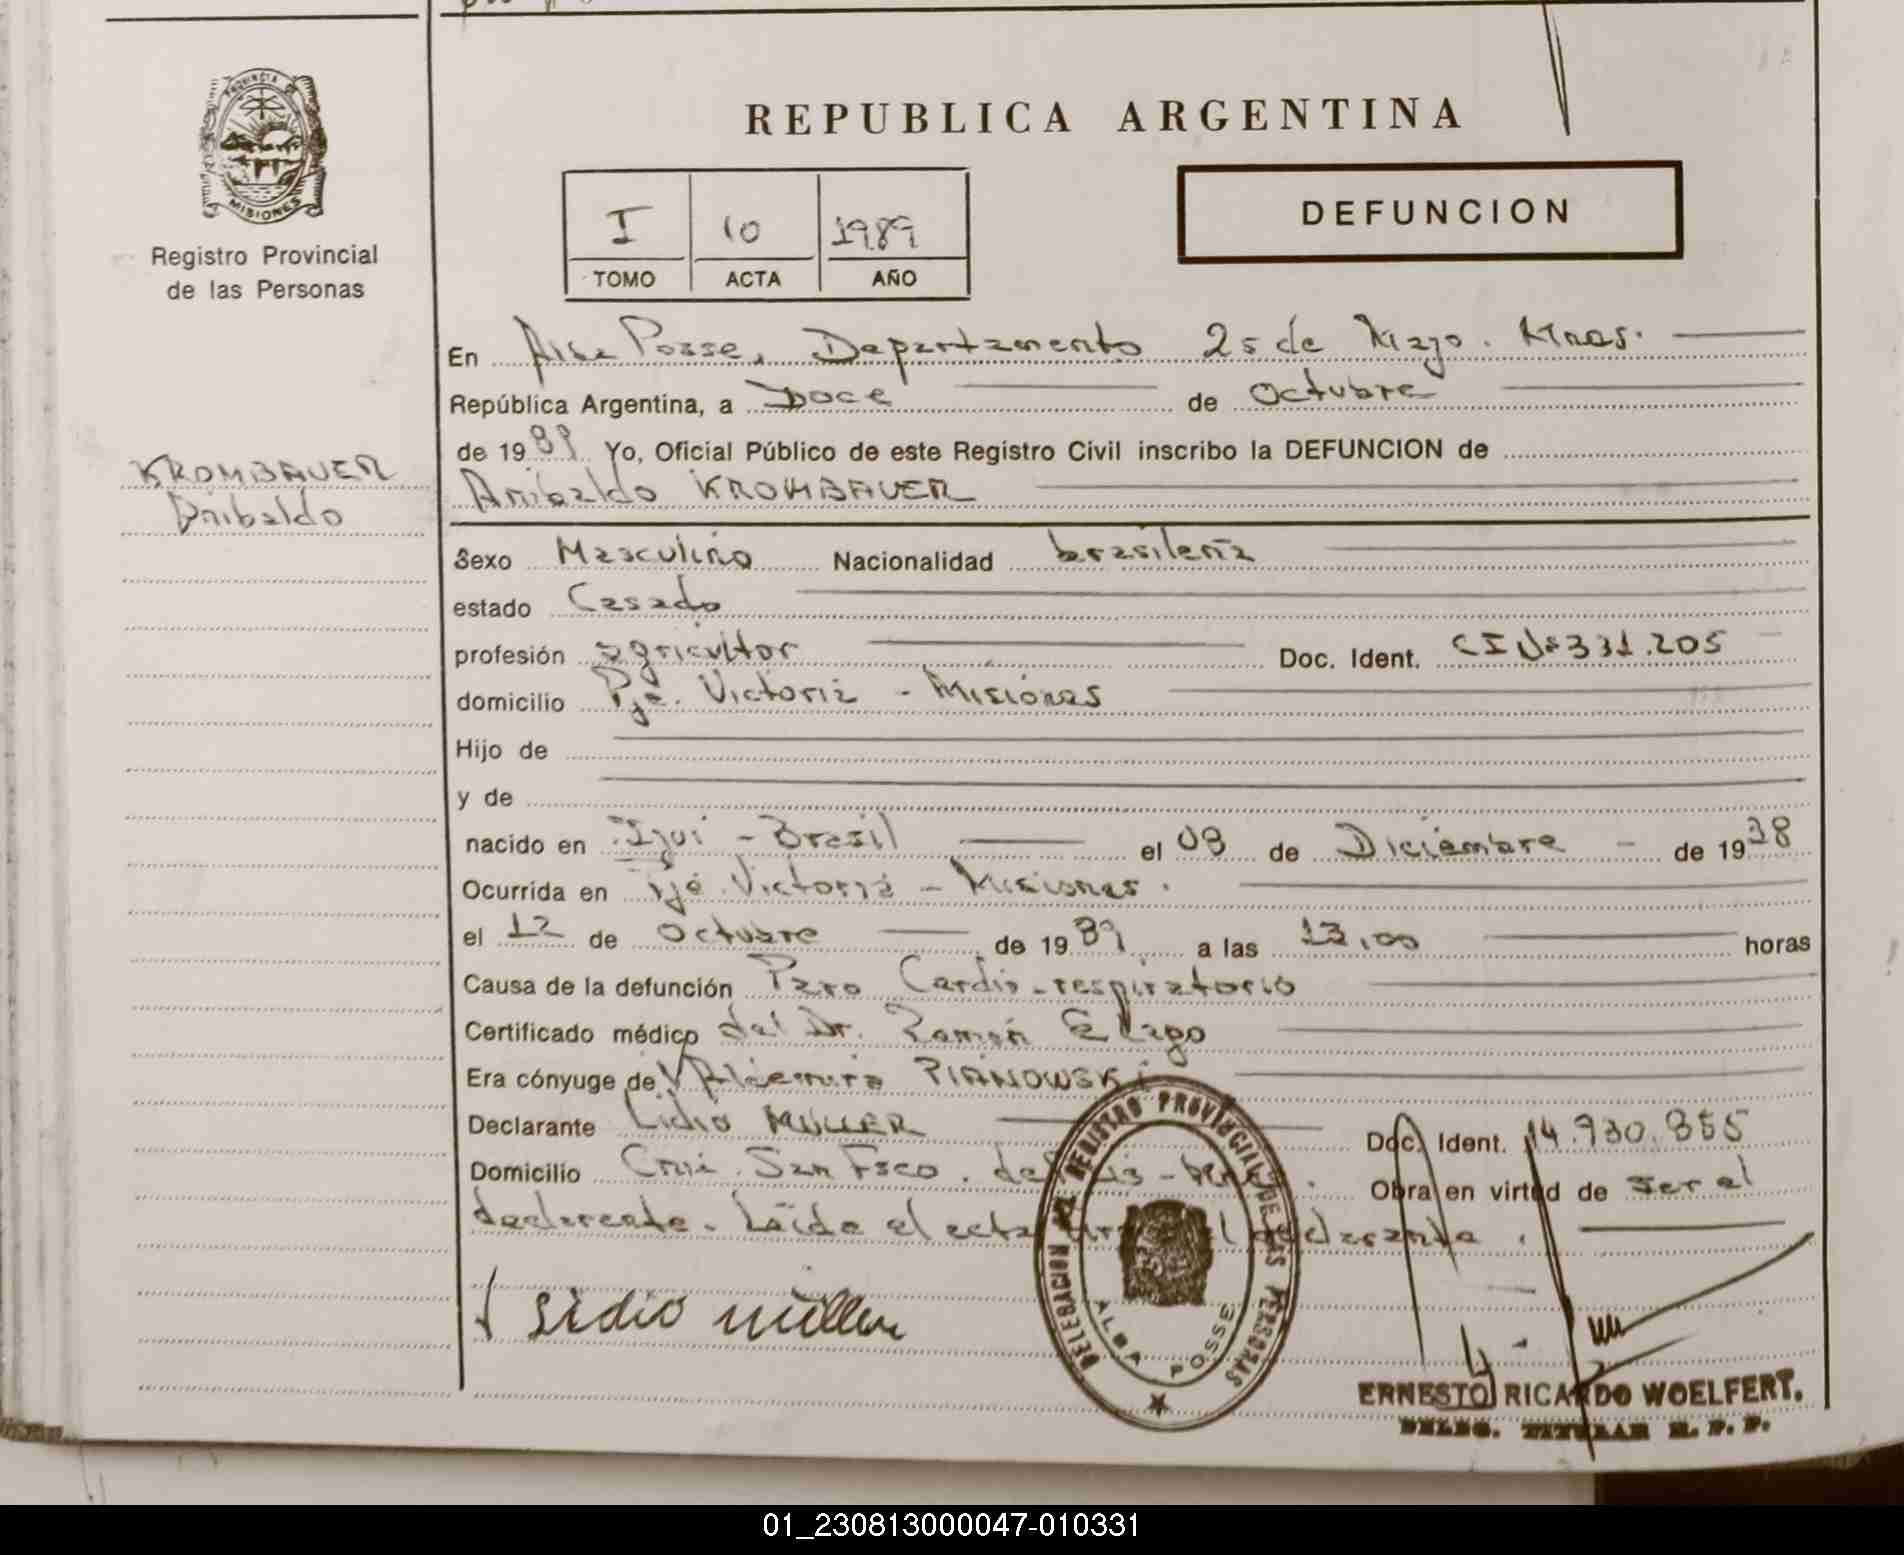 PROVINCIA DE
MISIONES
Registro Provincial
de las Personas
KROMBAUER
Anibaldo
REPUBLICA ARGENTINA
I 10 1989
TOMO ACTA AÑO
DEFUNCION
En Alba Posse, Departamento 25 de Mayo. Mnes.
República Argentina, a Doce de Octubre
de 1989 Yo, Oficial Público de este Registro Civil inscribo la DEFUNCION de
Anibaldo KROMBAUER
Sexo Masculino Nacionalidad brasileña
estado Casado
profesión agricultor Doc. Ident. CI Nº 331.205
domicilio Pje. Victoria - Misiones
Hijo de
y de
nacido en Ijui - Brasil el 08 de Diciembre de 1938
Ocurrida en Pje. Victoria - Misiones.
el 12 de Octubre de 1989 a las 13,00 horas
Causa de la defunción Paro Cardio-respiratorio
Certificado médico del Dr. Ramón E Lago
Era cónyuge de PIANOWSKI
Declarante Lidio MULLER Doc. Ident. 14.930.855
Domicilio Cnia. San Fsco. de Obra en virtud de ser el
declarante. Leída el acta declarante.
Lidio müller
DELEGACION DEL REGISTRO PROVINCIAL DE LAS PERSONAS
ALBA POSSE
ERNESTO RICARDO WOELFERT.
DELEG. TITULAR R. P. P.
01_230813000047-010331